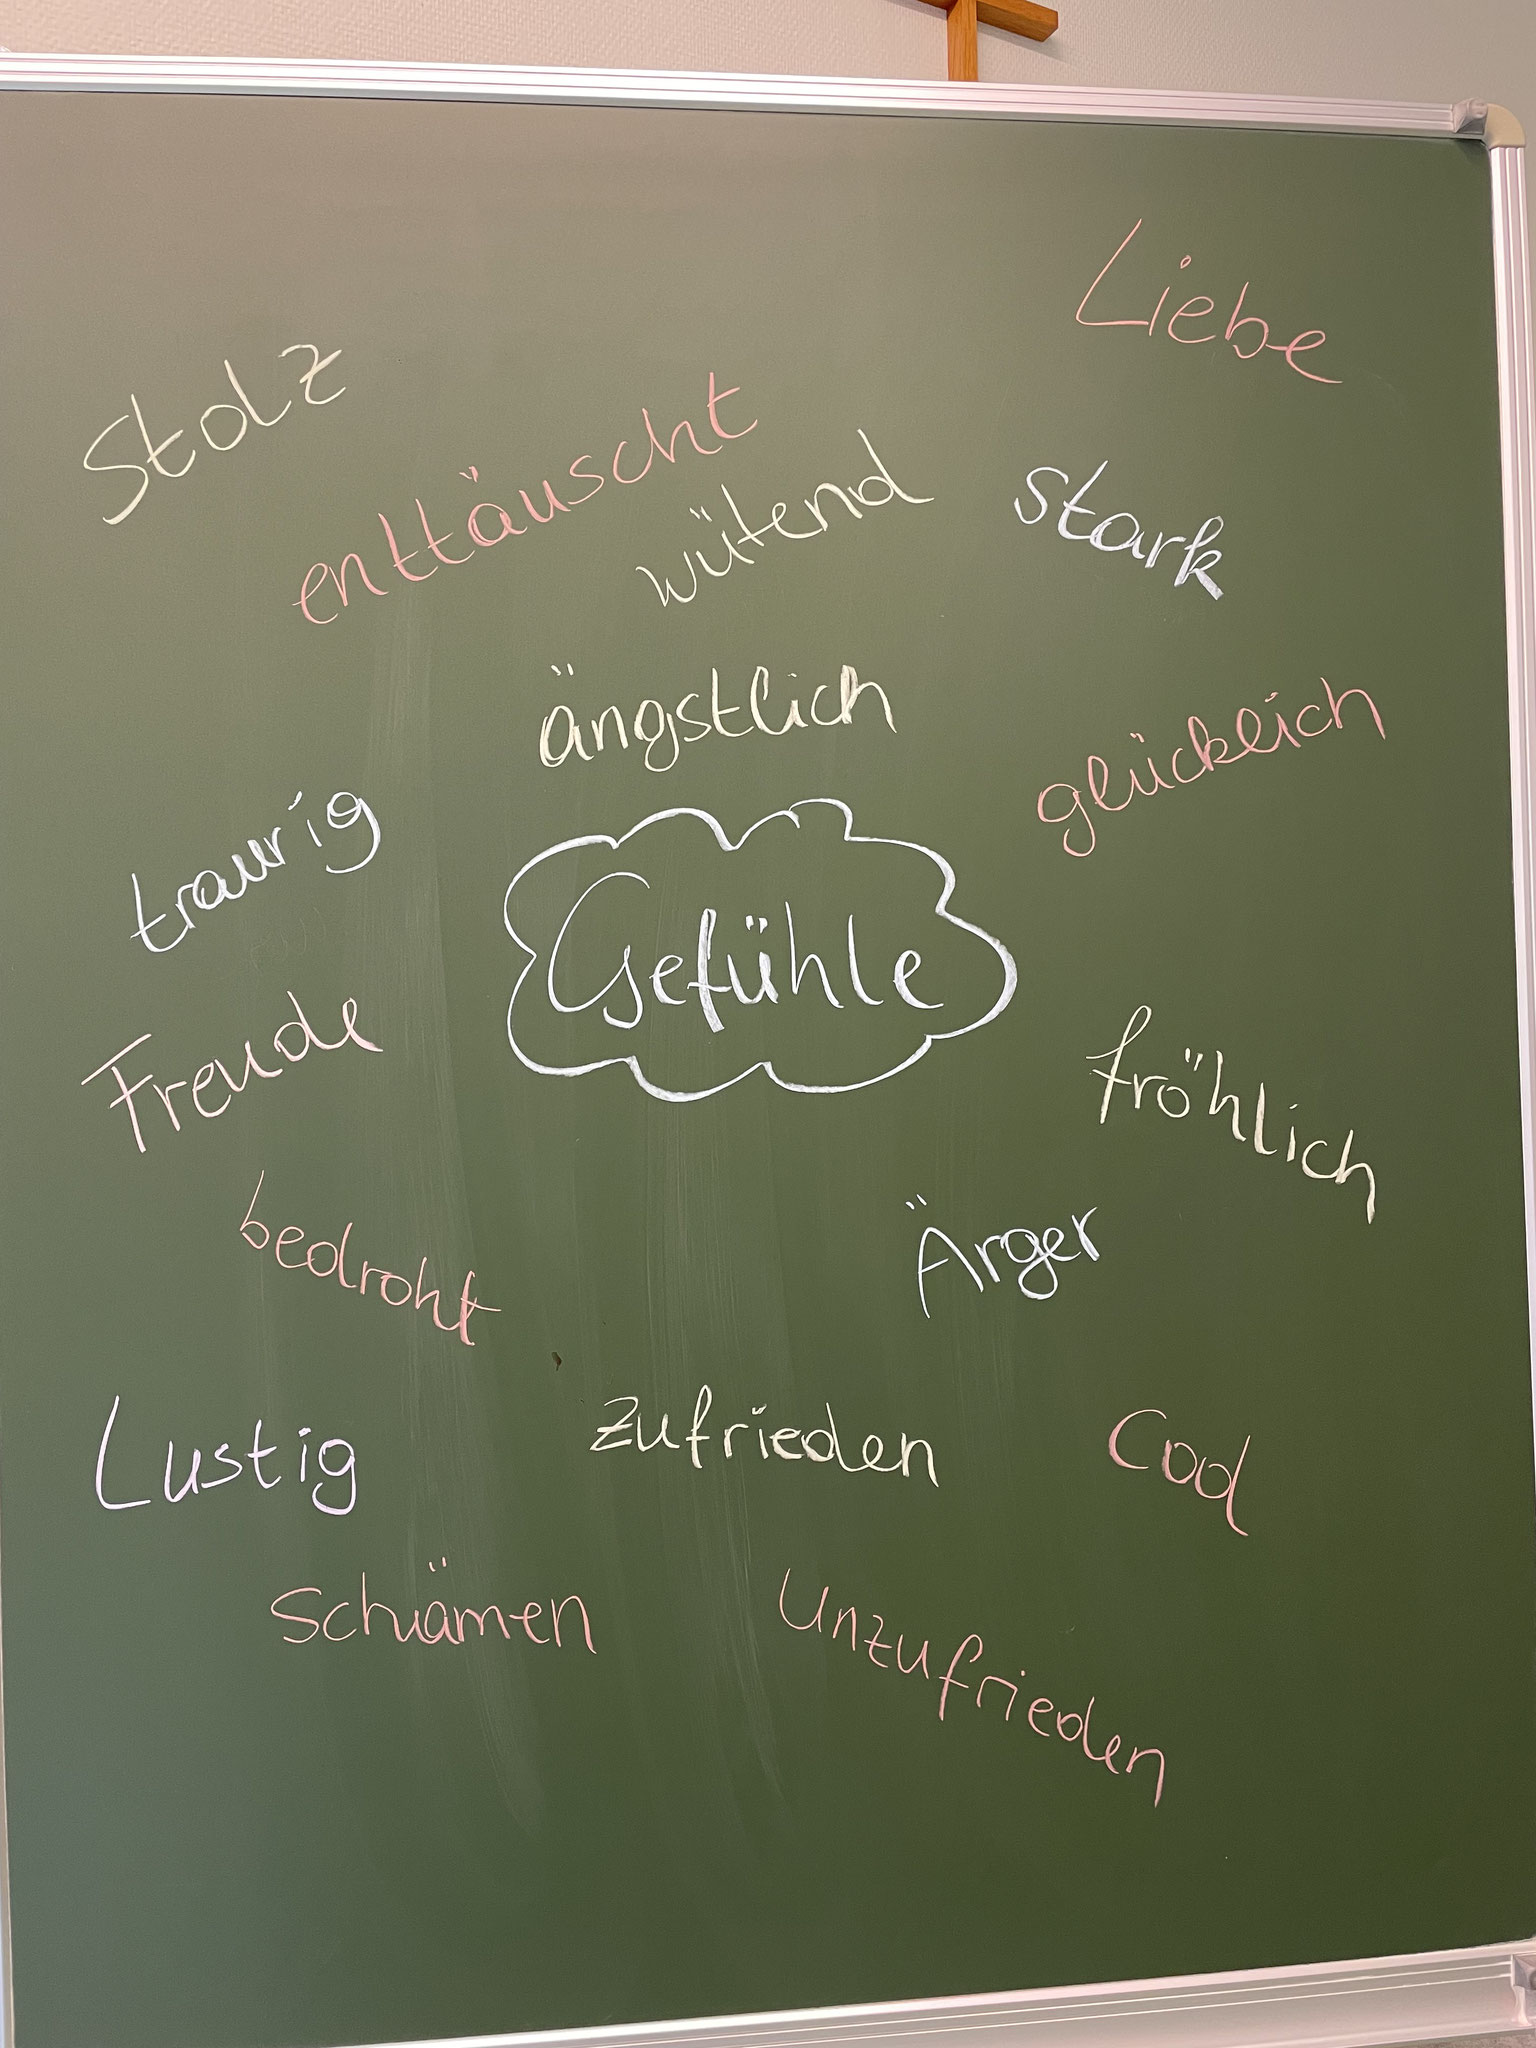 Liebe
Stolz
enttäuscht
wütend
stark
ängstlich
glücklich
traurig
Gefühle
Freude
fröhlich
bedroht
Ärger
Lustig
zufrieden
Cool
Schämen
Unzufrieden